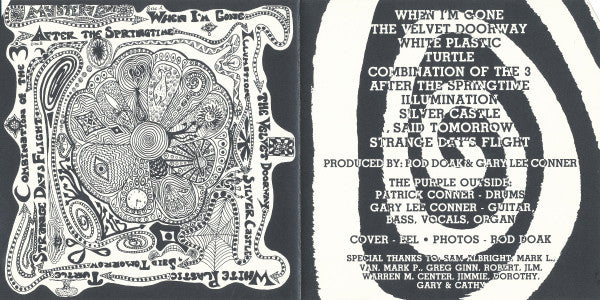 MYSTERY
SIDE A
WHEN I'M GONE
AFTER THE SPRINGTIME
SIDE B
COMBINATION OF THE 3
ILLUMINATION
THE VELVET DOORWAY
STRANGE DAYS FLIGHT
SILVER CASTLE
I SAID TOMORROW
TURTLE
WHITE PLASTIC
WHEN I'M GONE
THE VELVET DOORWAY
WHITE PLASTIC
TURTLE
COMBINATION OF THE 3
AFTER THE SPRINGTIME
ILLUMINATION
SILVER CASTLE
I SAID TOMORROW
STRANGE DAYS FLIGHT
PRODUCED BY: ROD DOAK & GARY LEE CONNER
THE PURPLE OUTSIDE:
PATRICK CONNER - DRUMS
GARY LEE CONNER - GUITAR,
BASS, VOCALS, ORGAN
COVER - EEL • PHOTOS - ROD DOAK
SPECIAL THANKS TO: SAM ALBRIGHT, MARK L.,
VAN, MARK P., GREG GINN, ROBERT, JLM,
WARREN M. CENTER, JIMMIE, DOROTHY,
GARY & CATHY